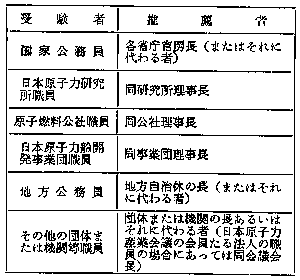 受験者
推薦者
国家公務員
各省庁官房長（またはそれに
代わる者）
日本原子力研究
所職員
同研究所理事長
原子燃料公社職員
同公社理事長
日本原子力船開
発事業団職員
同事業団理事長
地方公務員
地方自治体の長（またはそれ
に代わる者）
その他の団体ま
たは機関等職員
団体または機関の長あるいは
それに代わる者（日本原子力
産業会議の会員たる法人の職
員の場合にあっては同会議会
長）